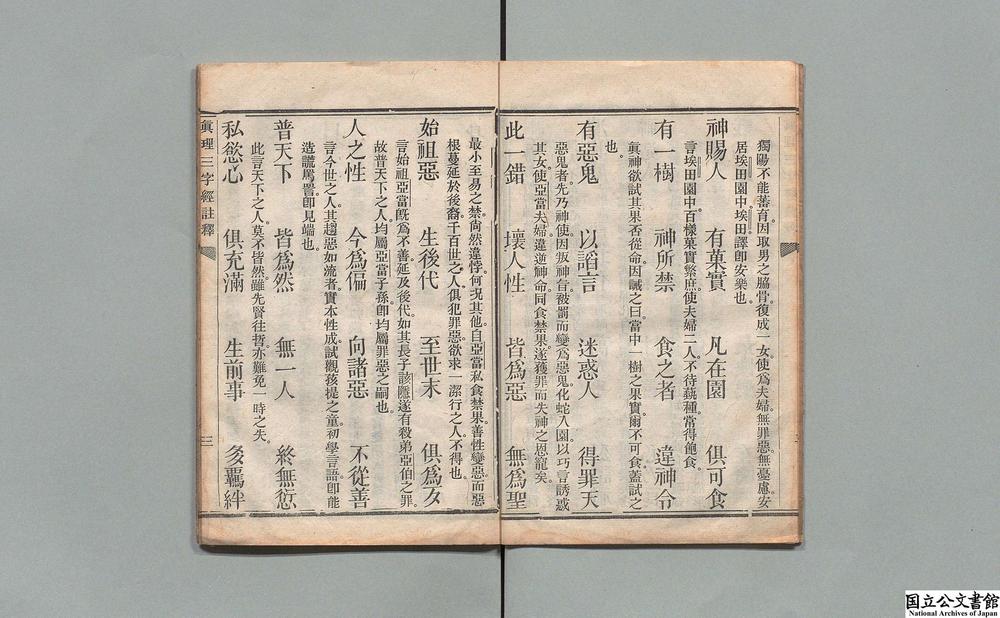 獨陽不能蕃育。因取男之脇骨。復成一女。使爲夫婦。無罪惡。無憂慮。安
居埃田園中。埃田譯卽安樂也。
神賜人 有菓實 凡在園 俱可食
言埃田園中。百樣菓實繁庶。使夫婦二人。不待藝種。常得飽食。
有一樹 神所禁 食之者 違神令
眞神欲試其果否從命。因誡之曰。當中一樹之果實。爾不可食。蓋試之
也。
有惡鬼 以謟言 迷惑人 得罪天
惡鬼者。先乃神使。因叛神旨。被罰而變爲惡鬼。化蛇入園。以巧言誘惑
其女。使亞當夫婦。違逆神命。同食禁果。遂獲罪而失神之恩寵矣。
此一錯 壞人性 皆爲惡 無爲聖
最小至易之禁。尙然違悖。何况其他。自亞當私食禁果。善性變惡。而惡
根蔓延於後裔。千百世之人。俱犯罪惡。欲求一潔行之人。不得也。
始祖惡 生後代 至世末 俱爲歹
言始祖亞當旣爲不善。延及後代。如其長子該隱。遂有殺弟亞伯之罪。
故普天下之人。均屬亞當子孫。卽均屬罪惡之嗣也。
人之性 今爲偏 向諸惡 不從善
言今世之人。其趨惡如流者。實本性成。試觀孩提之童。初學言語。卽能
造謊罵詈。卽見端也。
普天下 皆爲然 無一人 終無愆
此言天下之人。莫不皆然。雖先賢往哲。亦難免一時之失。
私慾心 俱充滿 生前事 多羈絆
眞理三字經註釋 三
国立公文書館
National Archives of Japan